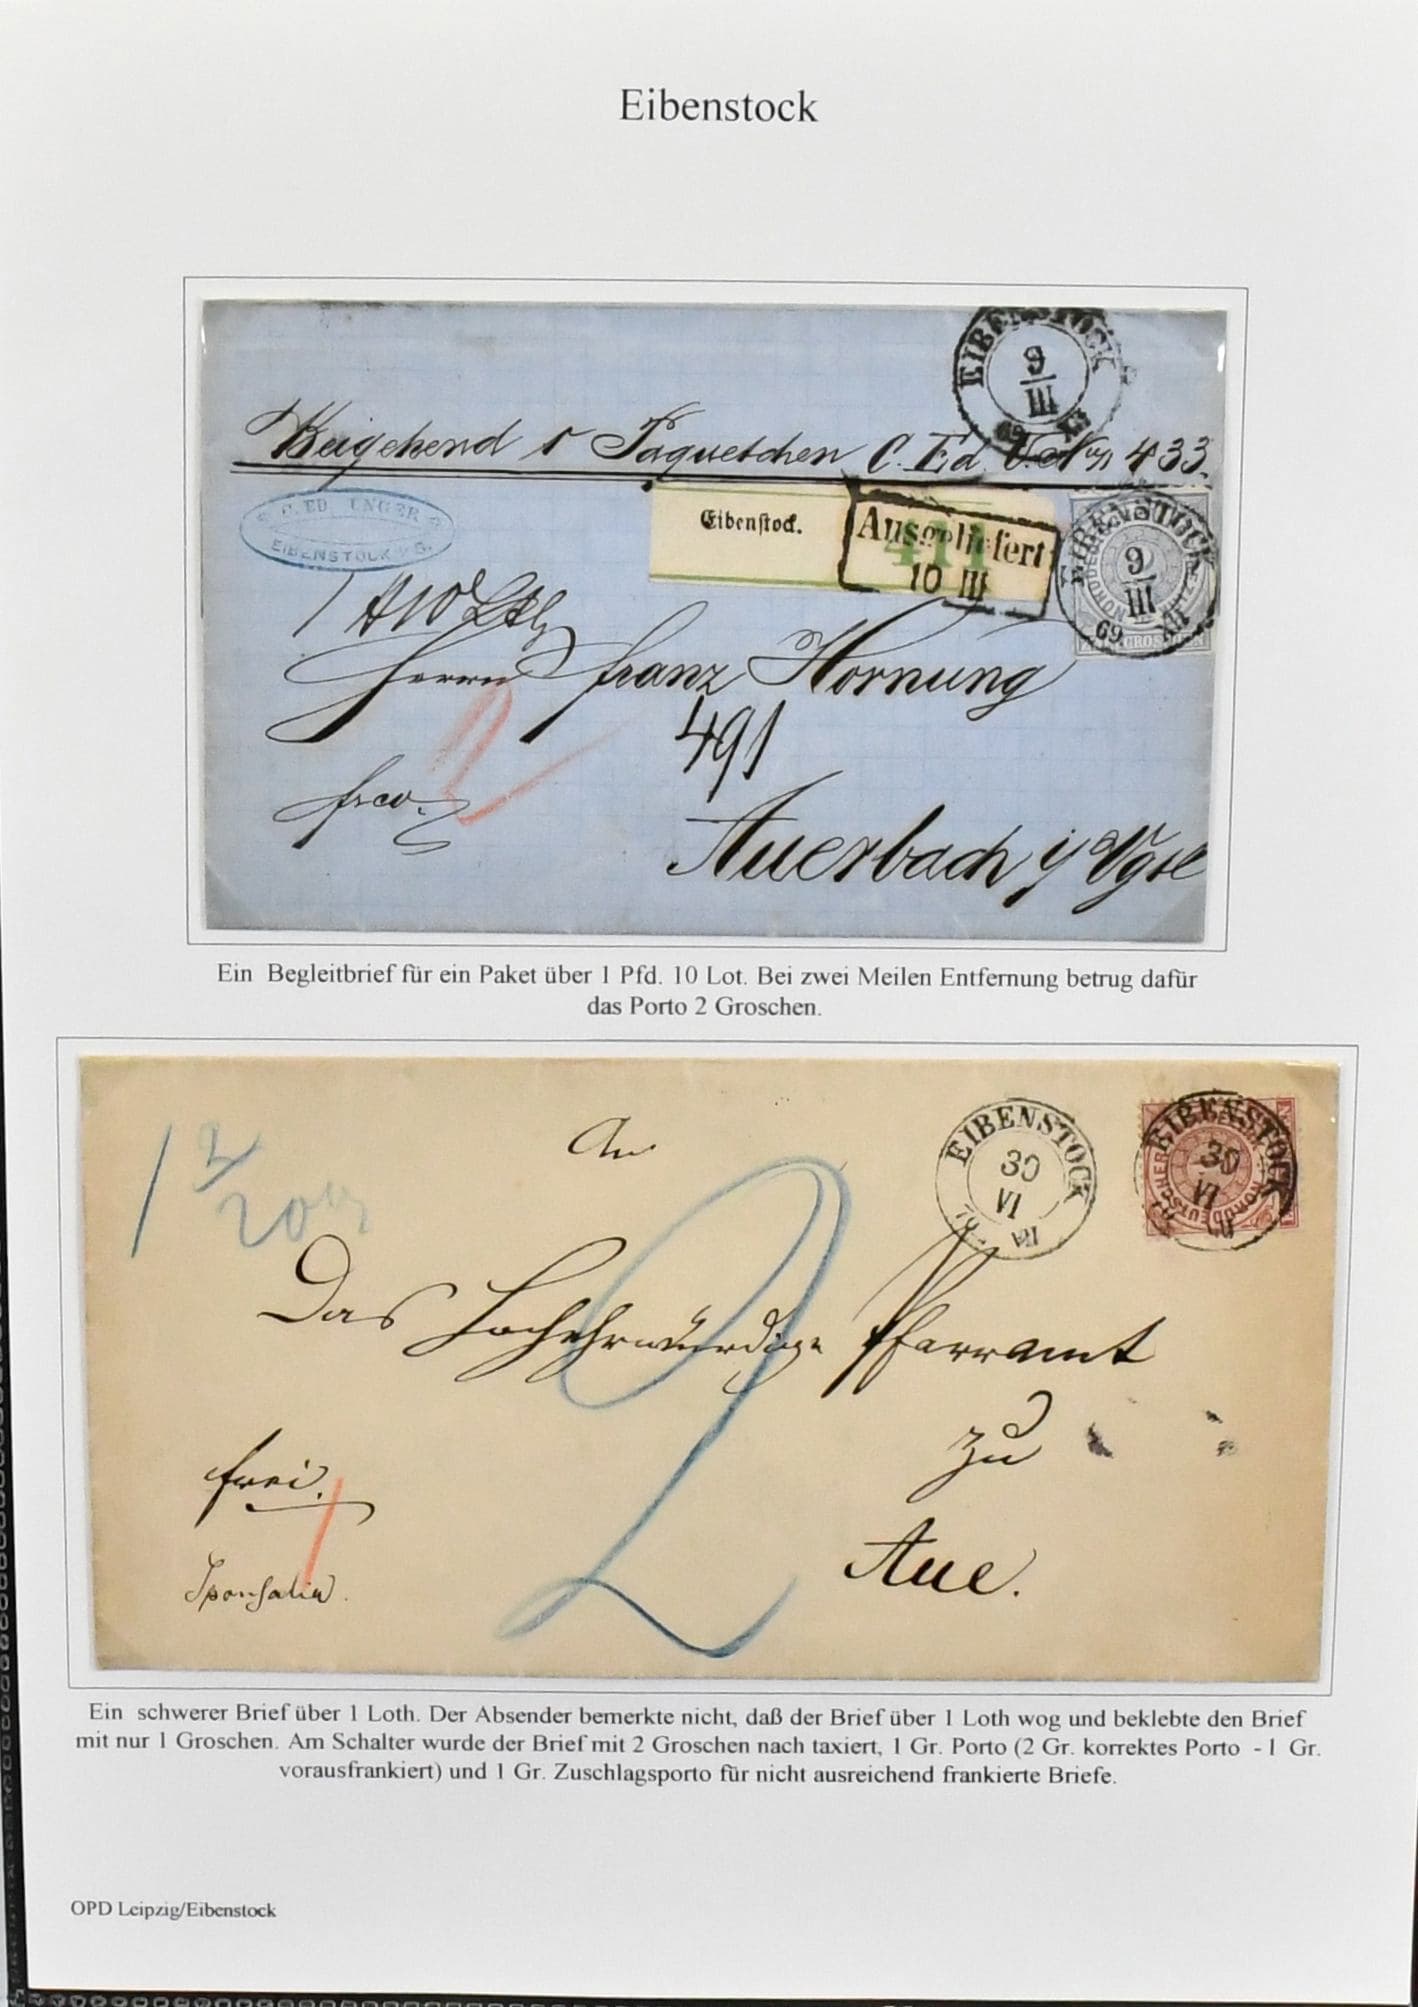 Eibenstock
EIBENSTOCK
9
III
69
Beigehend 1 Paquetchen C. Ed. U. No 433.
C. ED. UNGER
EIBENSTOCK
Eibenstock.
411
Ausgeliefert
10 III
EIBENSTOCK
9
III
69 XII
GROSCHEN
Herrn Franz Hornung
2
491
frco.
Auerbach i/Vgtl
Ein Begleitbrief für ein Paket über 1 Pfd. 10 Lot. Bei zwei Meilen Entfernung betrug dafür
das Porto 2 Groschen.
An
EIBENSTOCK
30
VI
EIBENSTOCK
30
VI
NORDDEUTSCHER
1 2/20
2
Das Hochehrwürdige Pfarramt
zu
frei.
1
Aue.
Sponsalia.
Ein schwerer Brief über 1 Loth. Der Absender bemerkte nicht, daß der Brief über 1 Loth wog und beklebte den Brief
mit nur 1 Groschen. Am Schalter wurde der Brief mit 2 Groschen nach taxiert, 1 Gr. Porto (2 Gr. korrektes Porto - 1 Gr.
vorausfrankiert) und 1 Gr. Zuschlagsporto für nicht ausreichend frankierte Briefe.
OPD Leipzig/Eibenstock